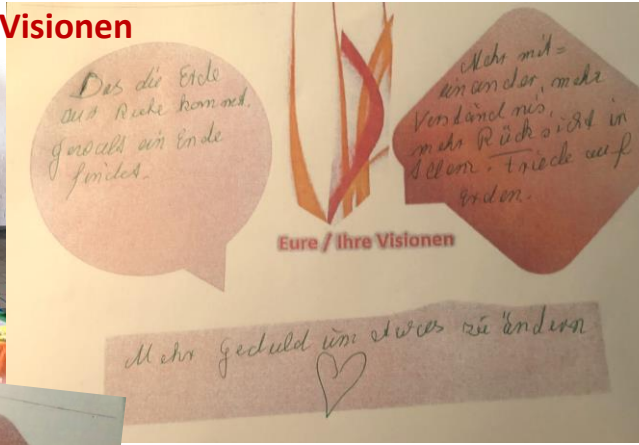 Visionen
Das die Erde
aus Ruhe kommet.
Gewalt ein Ende
findet.
Mehr mit=
einander, mehr
Verständnis,
mehr Rücksicht in
Allem. Friede auf
Erden.
Eure / Ihre Visionen
Mehr Geduld um etwas zu ändern